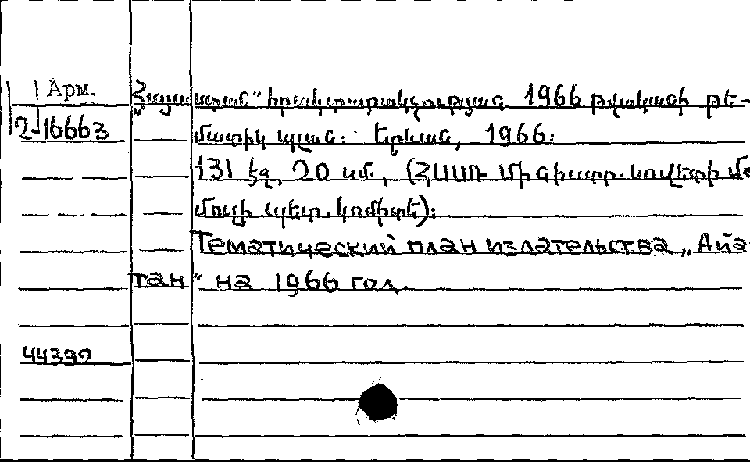 Арм.
„Հայաստան" հրատարակչության 1966 թվականի թե-
2-16663
մատիկ պլան: Երևան, 1966:
131 էջ, 20 սմ., (ՀՍՍՌ Մինիստր. սովետի մա
մուլի պետ. կոմիտե):
Тематический план издательства „Айас
тан" на 1966 год.
44390